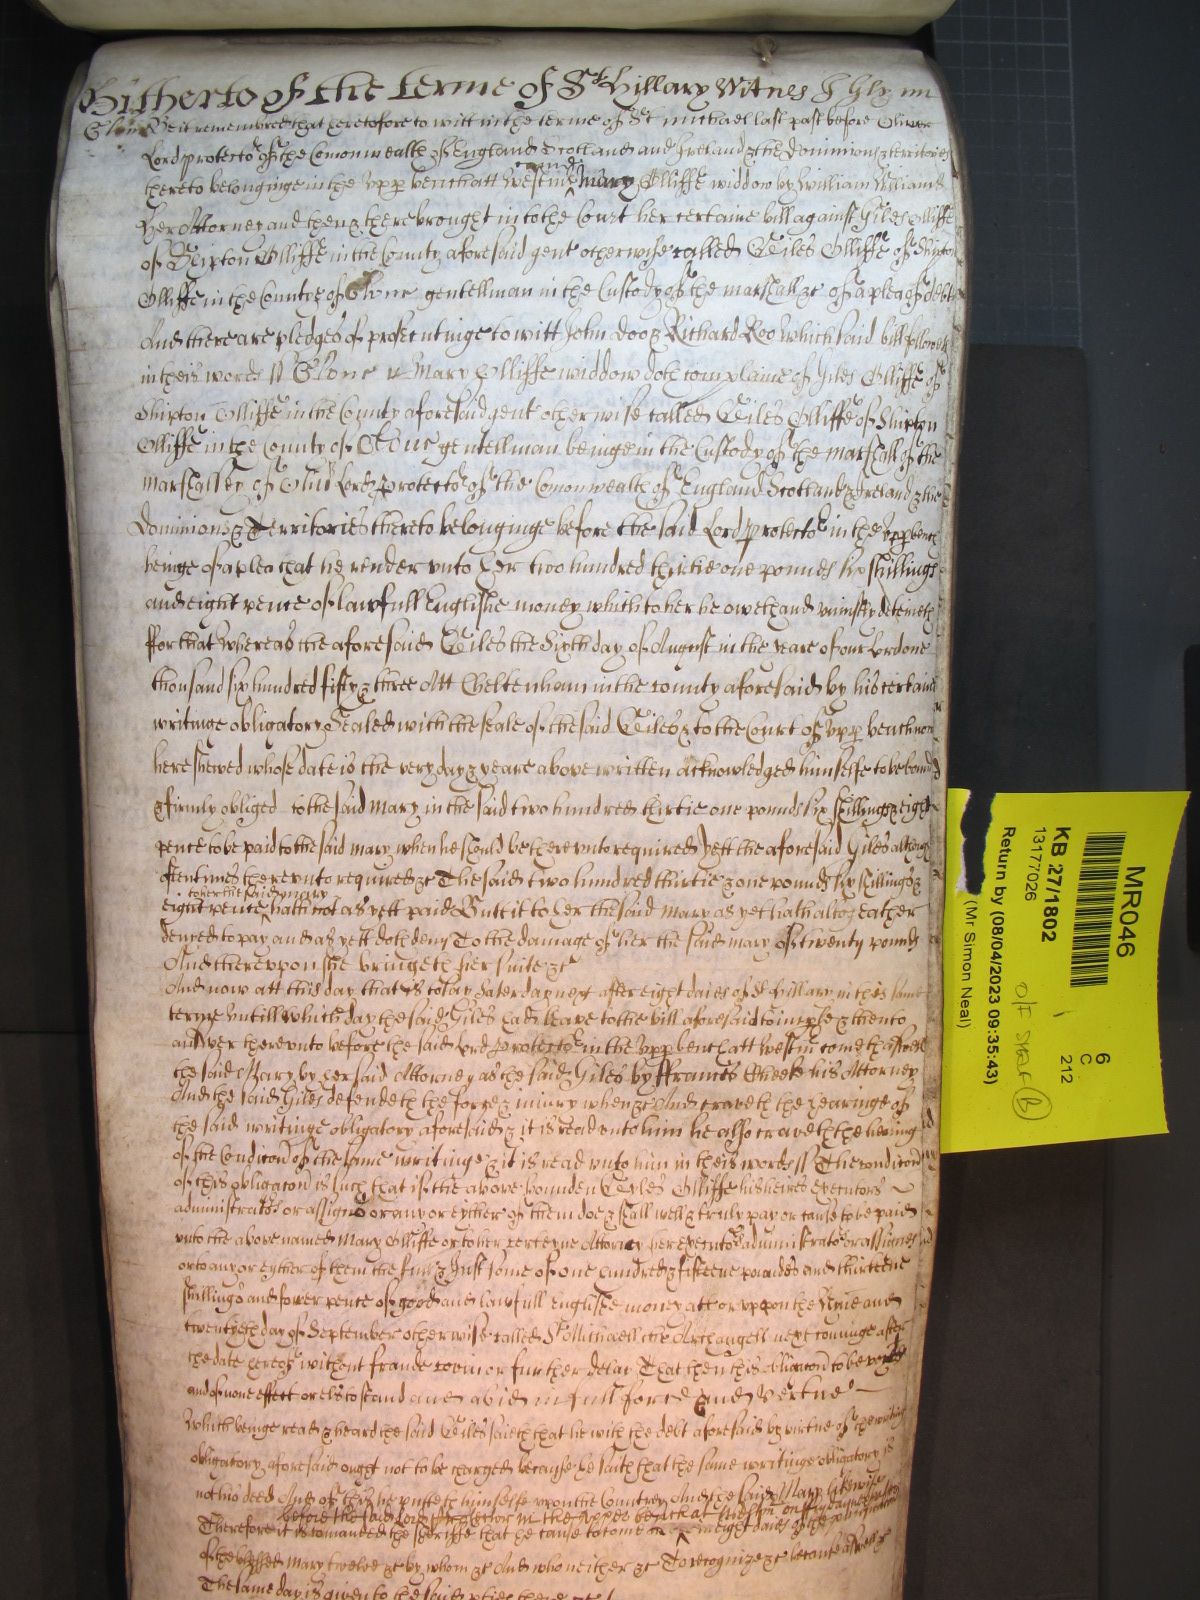 Hitherto of the terme of St Hillary Witnes J Glynn
Glouc Be it remembred that heretofore to witt in the terme of St Michael last past before Oliver
Lord protector of the Comonwealth of England Scotland and Ireland & the dominions & territories
thereto belonginge in the upp bench att Westmr came Mary Olliffe widdow by William Williams
Her Attorney and then & there brought into the Court her certaine bill against Giles Olliffe
of Shipton Olliffe in the County aforesaid gent otherwise called Giles Olliffe of Shipton
Olliffe in the Countye of Glouc gentellman in the Custody of the marshall &c of a plea of debt
And there are pledges of prosecutinge to witt John Doo & Richard Roo which said bill followeth
in theis words // Glouc // Mary Olliffe widdow doth complaine of Giles Olliffe of
Shipton Olliffe in the County aforesaid gent otherwise called Giles Olliffe of Shipton
Olliffe in the County of Glouc gentellman beinge in the Custody of the marshall of the
marshallsey of Lord protector of the Comonwealth of England Scotland & Ireland & the
dominions & Territories thereto belonginge before the said Lord protector in the upp bench
beinge of a plea that he render unto her two hundred thirtie one pounds six shillings
and eight pence of lawfull Englishe money which to her he oweth and uniustly deteineth
ffor that whereas the aforesaid Giles the Sixth day of August in the yeare of our Lord one
thousand six hundred fifty & three Att Cheltenham in the county aforesaid by his certaine
writinge obligatory Sealed with the seale of the said Giles & to the Court of upp bench now
here shewed whose date is the very day & yeare above written acknowledged himselfe to be bound
& firmly obliged to the said Mary in the said two hundred thirtie one pounds six shillings & eight
pence to be paid to the said Mary when he should be thereunto required yett the aforesaid Giles although
oftentimes thereunto required &c The said two hundred thirtie & one pounds six shillings &
to her the said Mary
eight pence hath not as yett paid But it to her the said Mary as yet hath altogeather
denied to pay and as yett doth deny To the damage of her the said Mary of twenty pounds
And thereupon she bringeth her suite &c
And now att this day that is to say Saterday next after eight daies of St Hillary in this same
terme Untill which day the said Giles had leave to the bill aforesaid to imple & then to
answer thereunto before the said Lord Protector in the upp bench att Westmr come th aswell
the said Mary by her said Attorney as the said Giles by ffrancis Cheeke his Attorney
And the said Giles defendeth the force & iniury when &c And craveth the hearinge of
the said writinge obligatory aforesaid & it is read unto him he also craveth the hearing
of the Condicon of the same writinge & it is read unto him in theis words // The condicon
of this obligacon is such that if the above bounden Gyles Olliffe his heires executors
administrators or assignes or any or eyther of them doe & shall well & truly pay or cause to be paid
unto the above named Mary Olliffe or to her certeyne Attorny her executors administrators or assignes
or to any or eyther of them the full & Just some of one hundred & fifteene poundes and thirteene
shillings and fower pence of good and lawfull Englishe money att or uppon the Nyne and
twentyeth day of September otherwise called St Michaell the Archangell next cominge after
the date hereof without fraude covin or further delay That then this obligacon to be voyde
and of none effect or els to stand and abide in full force and vertue
Which beinge read & heard the said Giles saieth that he with the debt aforesaid by virtue of the writing
obligatory aforesaid ought not to be charged because he saith that the same writinge obligatory is
not his deed And of this he putteth himselfe upon the Countrey And the said Mary likewise
before the said Lord Protector in the upper bench at Westmr on
Therefore it is comanded the sheriffe that he cause to come in eight daies of the purification
of the blessed Mary twelve &c by whom &c And who neither &c To recognize &c because aswell &c
The same day is given to the said pties there &c
MR046
6
C
212
KB 27/1802
13177026
Return by (08/04/2023 09:35:43)
(Mr Simon Neal)
O/F SHELF B